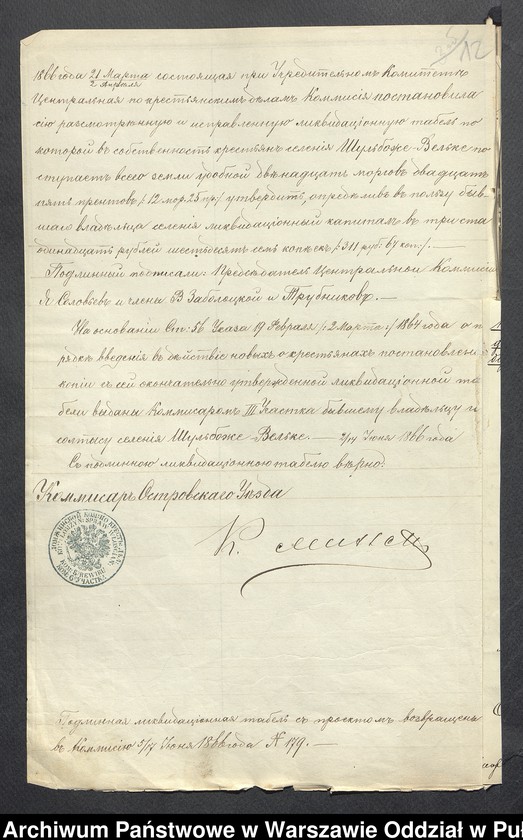 12
1866 года 21 Марта / 2 Апреля состоящая при Учредительномъ Комитетѣ
Центральная по крестьянскимъ дѣламъ Коммисія постановила
сію разсмотрѣнную и исправленную ликвидаціонную табель по
которой въ собственность крестьянъ селенія Шульбоже Вельке по
ступаетъ всего земли удобной двѣнадцать морговъ двадцать
пять прентовъ /:12 мор. 25 пр:/ утвердить, опредѣливъ въ пользу быв
шаго владѣльца селенія ликвидаціонный капиталъ въ триста
одинадцать рублей шестьдесятъ семь копѣекъ /:311 руб. 67 коп:/. —
Подлинный подписали: Предсѣдатель Центральной Коммисіи
Я Соловьевъ и члены В Заболоцкой и Трубниковъ. —
На основаніи Ст: 56 Указа 19 Февраля /:2 Марта:/ 1864 года о по
рядкѣ введенія въ дѣйствіе новыхъ о крестьянахъ постановленій
копіи съ сей окончательно утвержденной ликвидаціонной та
бели выданы Коммисаромъ III Участка бывшему владѣльцу и
солтысу селенія Шульбоже Вельке. — Іюня 1866 года
Съ подлинною ликвидаціонною табелью вѣрно:
Коммисаръ Островскаго Уѣзда
К.
Подлинная ликвидаціонная табель съ проэктомъ возвращена
въ Коммисію Іюня 1866 года N 179. —
Archiwum Państwowe w Warszawie Oddział w Pu